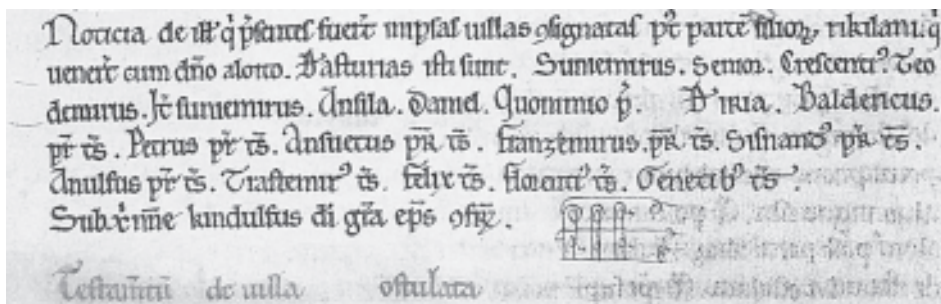 Noticia de ill' q̇ p̄sentes fuer̄t in ip̄sas uillas ꝯsignatas p̄t parte filioꝝ, rikilani. q̇
uener̄t cum dn̄o alotto. D'asturias isti sunt. Suniemirus. Senior. Crescentiꝰ. Teo
demirus. It̄ suniemirus. Ansila. Daniel. Quonimio p̄. D' iria. Baldericus.
pr̄ ts̄. Petrus pr̄ ts̄. Ansuetus pr̄ ts̄. franzemirus. pr̄ ts̄. Sisnandꝰ pr̄ ts̄.
Anulfus pr̄ ts̄. Trastemirꝰ ts̄. felix ts̄. ts̄. ts̄.
Sub kindulfus di gr̄a ep̄s
Testam̄tū de uilla ostulata